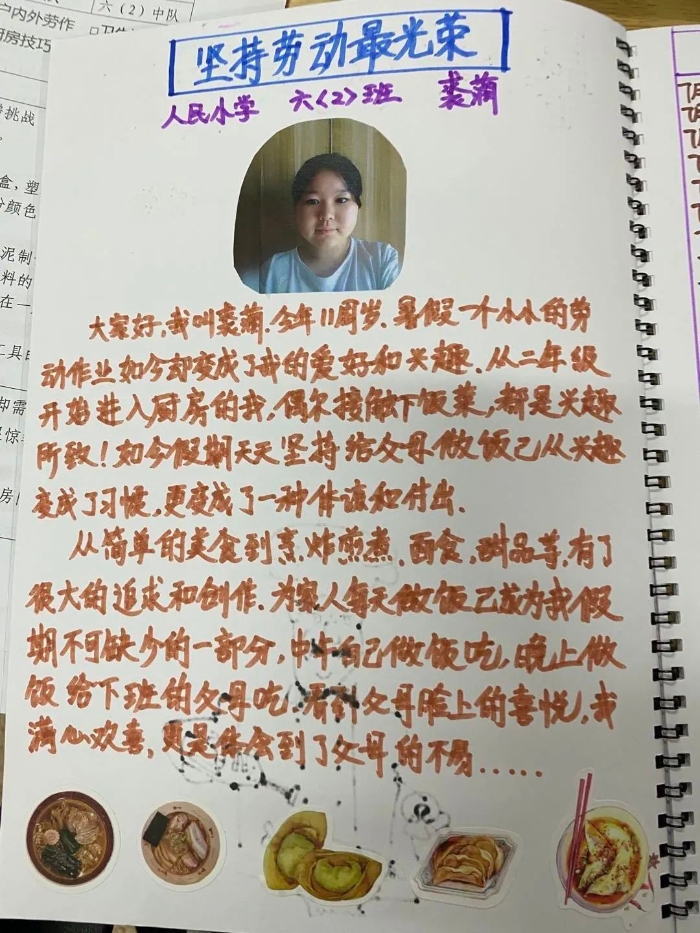 六（2）中队
户内外劳作
厨房技巧
挑战
盒，塑
分颜色
泥制
料的
在一
工具
却需
惊
房
坚持劳动最光荣
人民小学 六〈2〉班 裘蒲
大家好，我叫裘蒲.今年11周岁.暑假一个小小的劳
动作业如今却变成了我的爱好和兴趣.从二年级
开始进入厨房的我，偶尔接触下饭菜，都是兴趣
所致！如今假期天天坚持给父母做饭已从兴趣
变成了习惯，更变成了一种体谅和付出.
从简单的美食到烹.炸煎煮.面食，甜品等，有了
很大的追求和创作.为家人每天做饭已成为我假
期不可缺少的一部分，中午自己做饭吃，晚上做
饭给下班的父母吃.看到父母脸上的喜悦，我
满心欢喜，更是体会到了父母的不易……